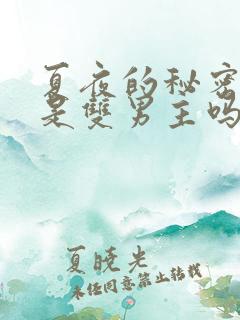 夏夜的秘密
是雙男主吗
夏晓光
未经同意禁止转载